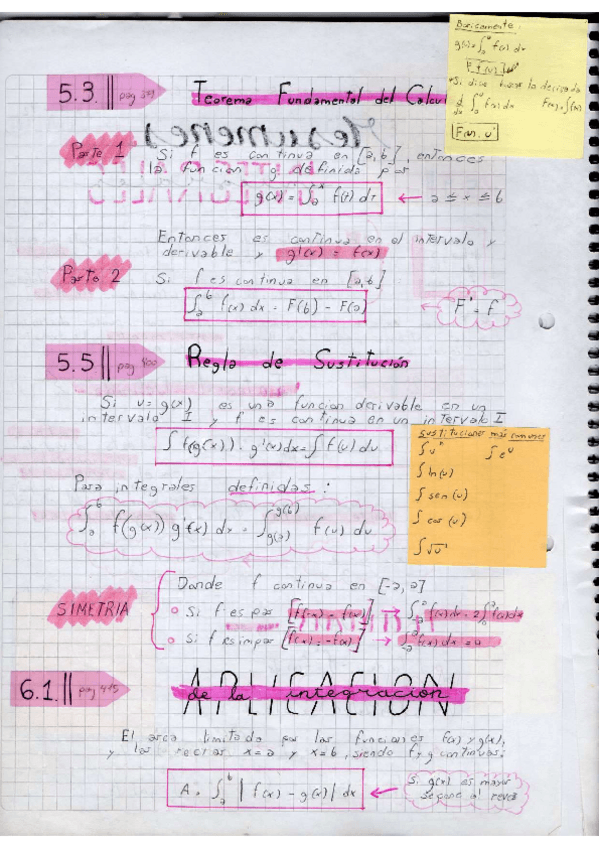 Basicamente:
g(x)=∫ₐᵘ f(x) dx
F(u)
*Si dice hacer la derivada
d/dx ∫ₐᵘ f(x) dx
F(u). u'
5.3. || pag
Teorema Fundamental del Calcul
Resumenes
Parte 1
Si f es continua en [a,b], entonces
la funcion g definida por
g(x) = ∫ₐˣ f(t) dt ← a ≤ x ≤ b
Entonces es continua en el intervalo y
derivable y g'(x) = f(x)
Parte 2
Si f es continua en [a,b]
∫ₐᵇ f(x) dx = F(b) - F(a) ← F' = f
5.5 || pag 400
Regla de Sustitución
Si u = g(x) es una funcion derivable en un
intervalo I y f es continua en un intervalo I
∫ f(g(x)). g'(x)dx = ∫ f(u) du
Sustituciones más comunes
∫ uⁿ ∫ eᵘ
∫ ln(u)
∫ sen(u)
∫ cos(u)
∫ √u
Para integrales definidas:
∫ₐᵇ f(g(x)) g'(x) dx = ∫ g(a) g(b) f(u) du
SIMETRIA
Donde f continua en [-a,a]
Si f es par [f(-x) = f(x)] → ∫₋ₐᵃ f(x)dx = 2∫₀ᵃ f(x)dx
Si f es impar [f(-x) = -f(x)] → ∫₋ₐᵃ f(x)dx = 0
6.1. || pag 415
APLICACION
de la integracion
El area limitada por las funciones f(x) y g(x),
y las rectas x=a y x=b, siendo f y g continuas:
A = ∫ₐᵇ | f(x) - g(x) | dx ← Si g(x) es mayor
se pone al reves